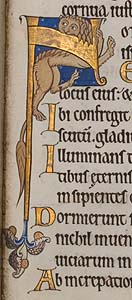 cornua iusti
locus eius· &
Ibi confregit
scutū, gladi
Illuminans
tibus eternis
insipientes
Dormierunt
nichil inuen
uiciarum in
Ab increpatio